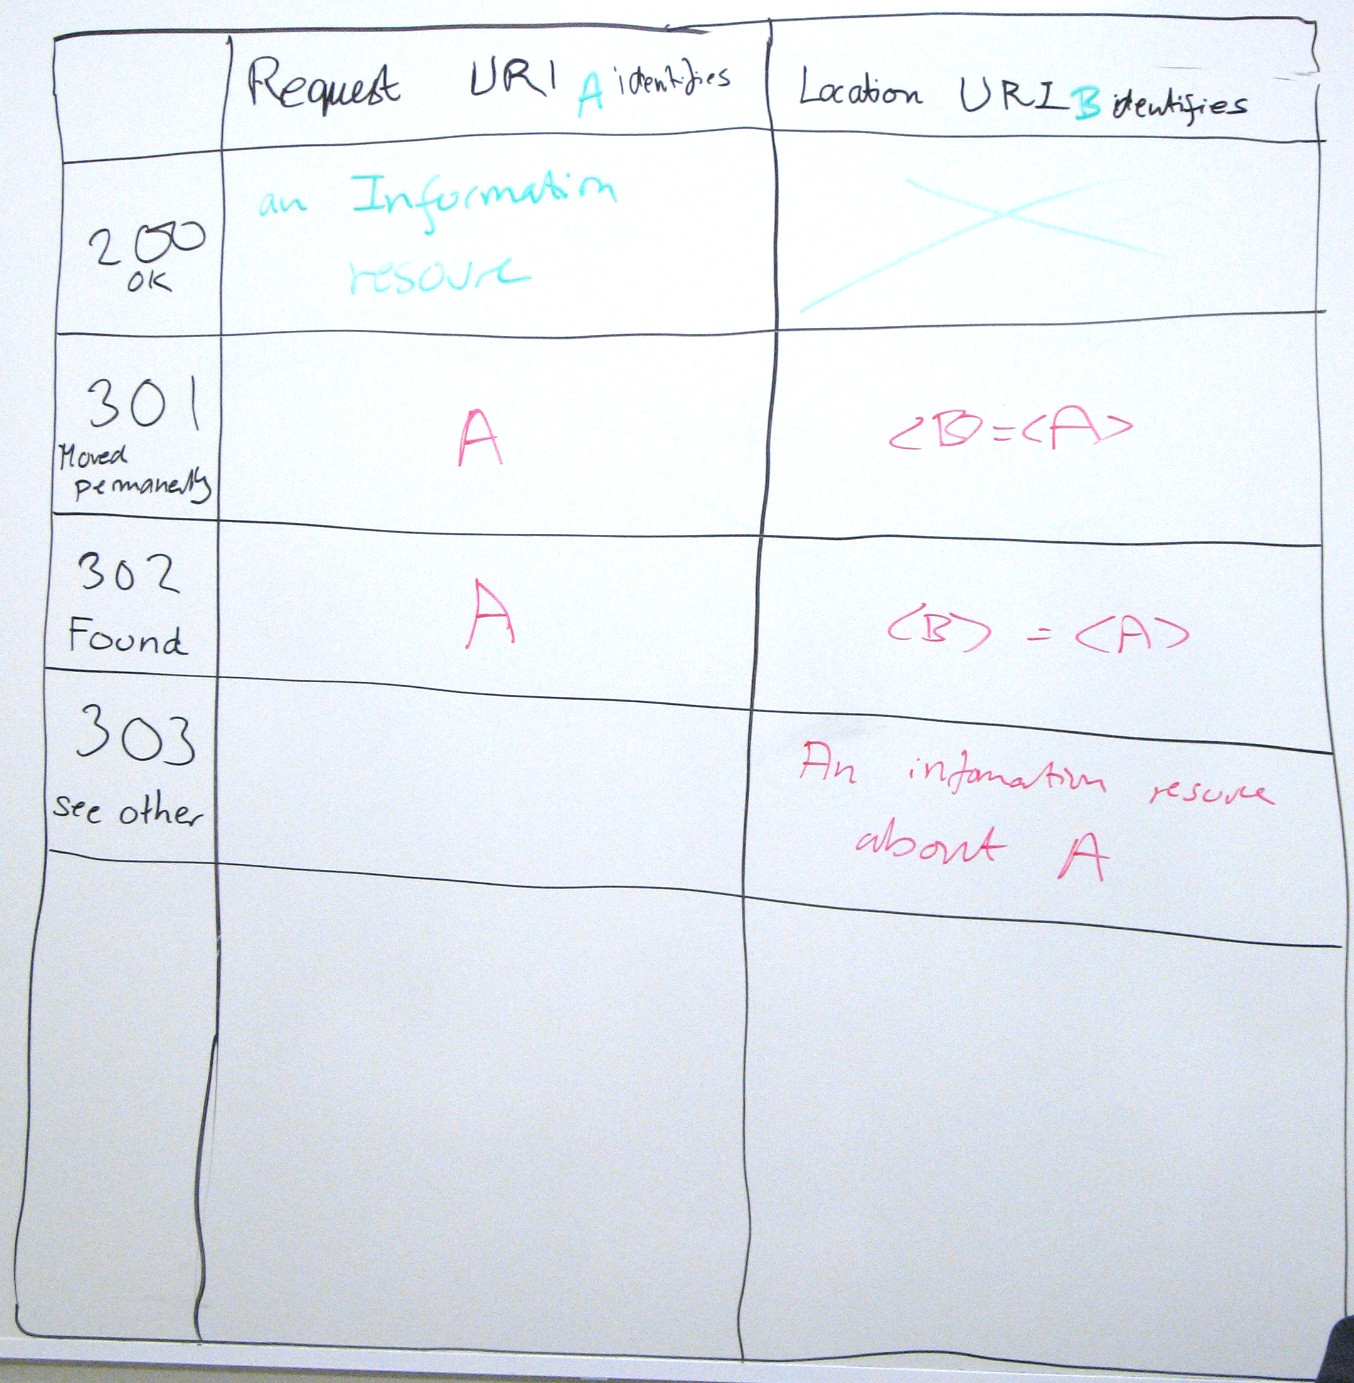 Request URI A identifies
Location URI B identifies
200
OK
an Information
resource
301
Moved
permanently
A
<B=<A>
302
Found
A
<B> = <A>
303
see other
An infomation resource
about A